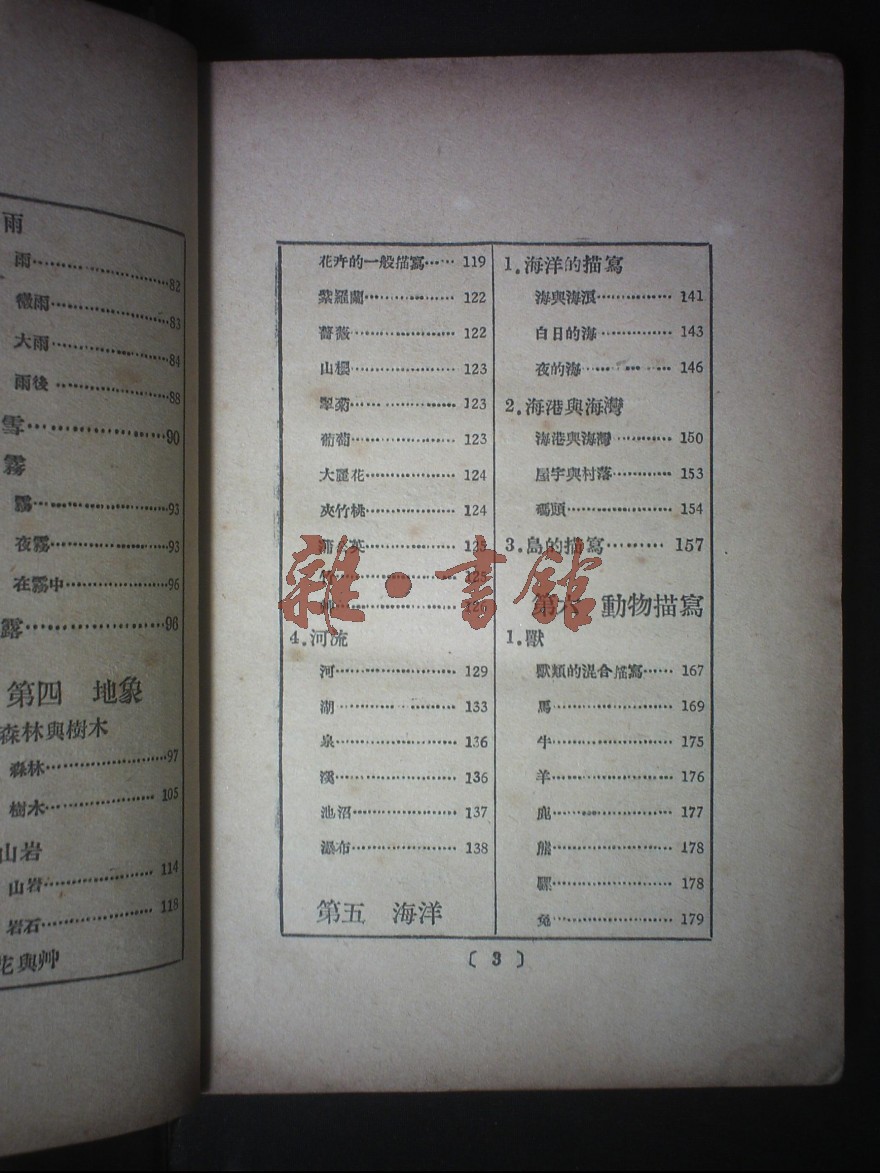 雨
雨……………82
微雨……………83
大雨……………84
雨後……………88
雪……………90
霧
霧……………93
夜霧……………93
在霧中……………96
露……………96
第四 地象
森林與樹木
森林……………97
樹木……………105
山岩
山岩……………114
岩石……………118
花與艸
花卉的一般描寫……119
紫羅蘭……………122
薔薇……………122
山櫻……………123
翠菊……………123
葡萄……………123
大麗花……………124
夾竹桃……………124
蒲公英……………125
竹……………125
126
4.河流
河……………129
湖……………133
泉……………136
溪……………136
池沼……………137
瀑布……………138
第五 海洋
1.海洋的描寫
海與海濱……………141
白日的海……………143
夜的海……………146
2.海港與海灣
海港與海灣……………150
屋宇與村落……………153
碼頭……………154
3.島的描寫………157
第六 動物描寫
1.獸
獸類的混合描寫……167
馬……………169
牛……………175
羊……………176
鹿……………177
熊……………178
騾……………178
兔……………179
〔3〕
雜·書館